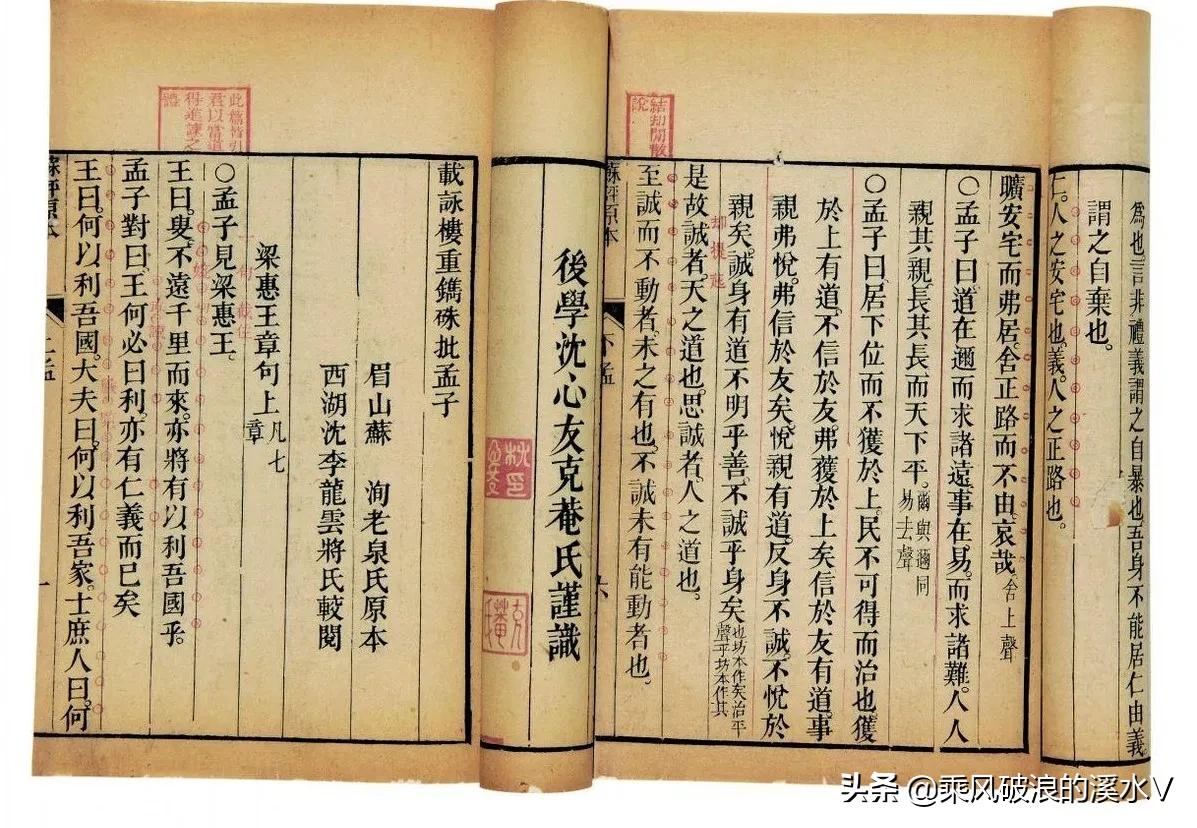 為也。言非禮義謂之自暴也。吾身不能居仁由義
謂之自棄也。
仁。人之安宅也。義。人之正路也。
曠安宅而弗居。舍正路而不由。哀哉。舍上聲
〇孟子曰。道在邇而求諸遠。事在易。而求諸難。人人
親其親。長其長。而天下平。爾與邇同
易去聲
〇孟子曰。居下位而不獲於上。民不可得而治也。獲
於上有道。不信於友。弗獲於上矣。信於友有道。事
親弗悅。弗信於友矣。悅親有道。反身不誠。不悅於
親矣。誠身有道。不明乎善。不誠乎身矣。
也坊本作矣治平
聲乎坊本作其
是故誠者。天之道也。思誠者。人之道也。
至誠而不動者。未之有也。不誠未有能動者也。
結却閒散
說
却提起
下孟
後學沈心友克菴氏謹識
載詠樓重鐫硃批孟子
眉山蘇 洵老泉氏原本
西湖沈李龍雲將氏較閱
梁惠王章句上凡七
章
〇孟子見梁惠王。
王曰。叟。不遠千里而來。亦將有以利吾國乎。
孟子對曰。王何必曰利。亦有仁義而已矣
王曰。何以利吾國。大夫曰。何以利吾家。士庶人曰。何
此篇皆引
君以當道
得進諫之
體
蘇評原本
上孟
一
头条 @乘风破浪的溪水V